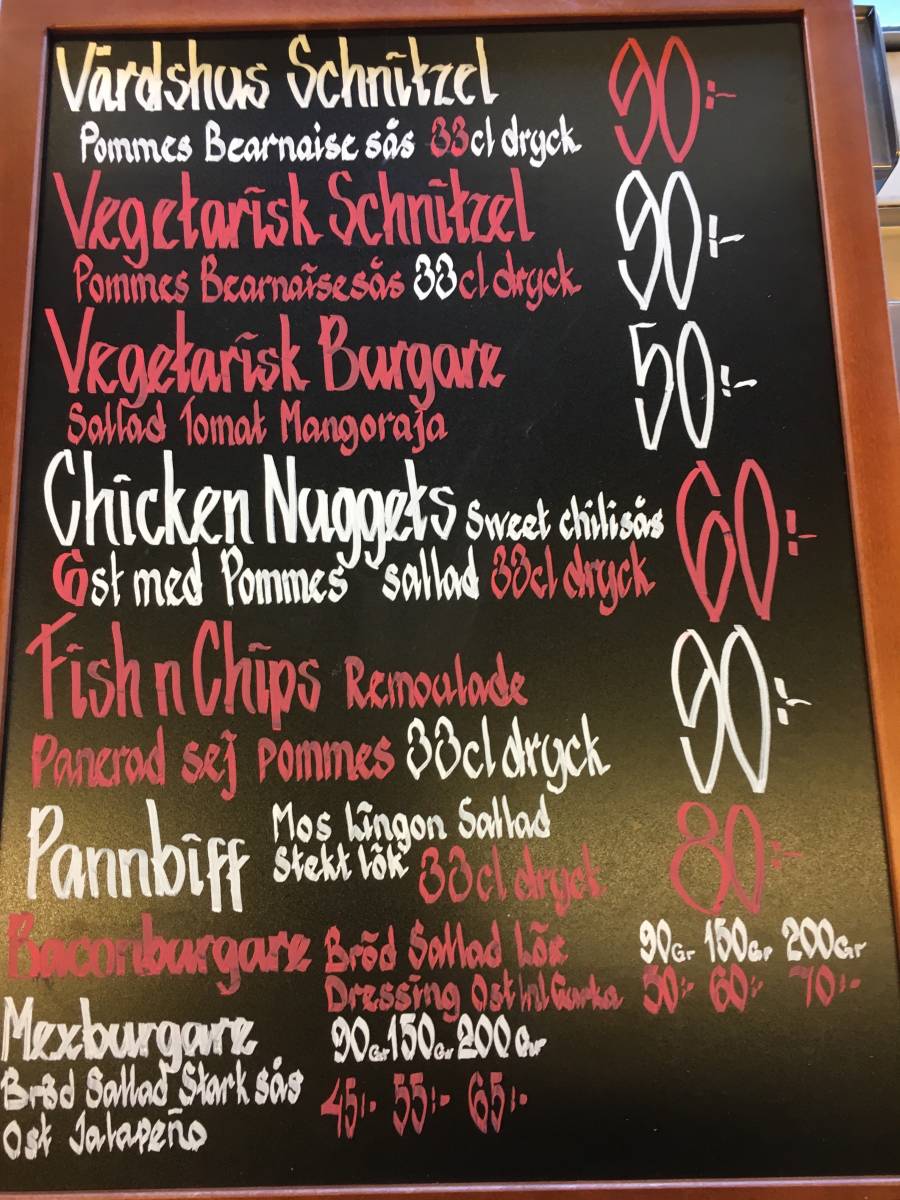 Värdshus Schnitzel 90:-
Pommes Bearnaise sås 33cl dryck
Vegetarisk Schnitzel 90:-
Pommes Bearnaisesås 33cl dryck
Vegetarisk Burgare 50:-
Sallad Tomat Mangoraja
Chicken Nuggets Sweet chilisås 60:-
6st med Pommes sallad 33cl dryck
Fish n Chips Remoulade 90:-
Panerad sej pommes 33cl dryck
Pannbiff Mos Lingon Sallad 80:-
Stekt lök 33cl dryck
Baconburgare Bröd Sallad Lök 90Gr 150Gr 200Gr
Dressing Ost Inl Gurka 50:- 60:- 70:-
Mexburgare 90Gr 150Gr 200Gr
Bröd Sallad Stark sås 45:- 55:- 65:-
Ost Jalapeño